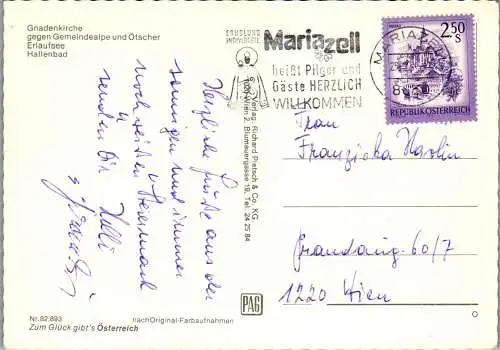 Gnadenkirche
gegen Gemeindealpe und Ötscher
Erlaufsee
Hallenbad
ERHOLUNG
INDIVIDUELL
Mariazell
heißt Pilger und
Gäste HERZLICH
WILLKOMMEN
MARIAZELL
8630
2.50
S
REPUBLIK ÖSTERREICH
Herzliche Grüße aus der
sonnigen und immer
noch weißen Steiermark
senden Dir Helli
u.
Verlag: Richard Pietsch & Co. KG.
1020 Wien 2, Blumauergasse 19, Tel. 24 25 84
Frau
Franziska
60/7
1220 Wien
PAG
Nr. 82.893
nach Original-Farbaufnahmen
Zum Glück gibt's Österreich